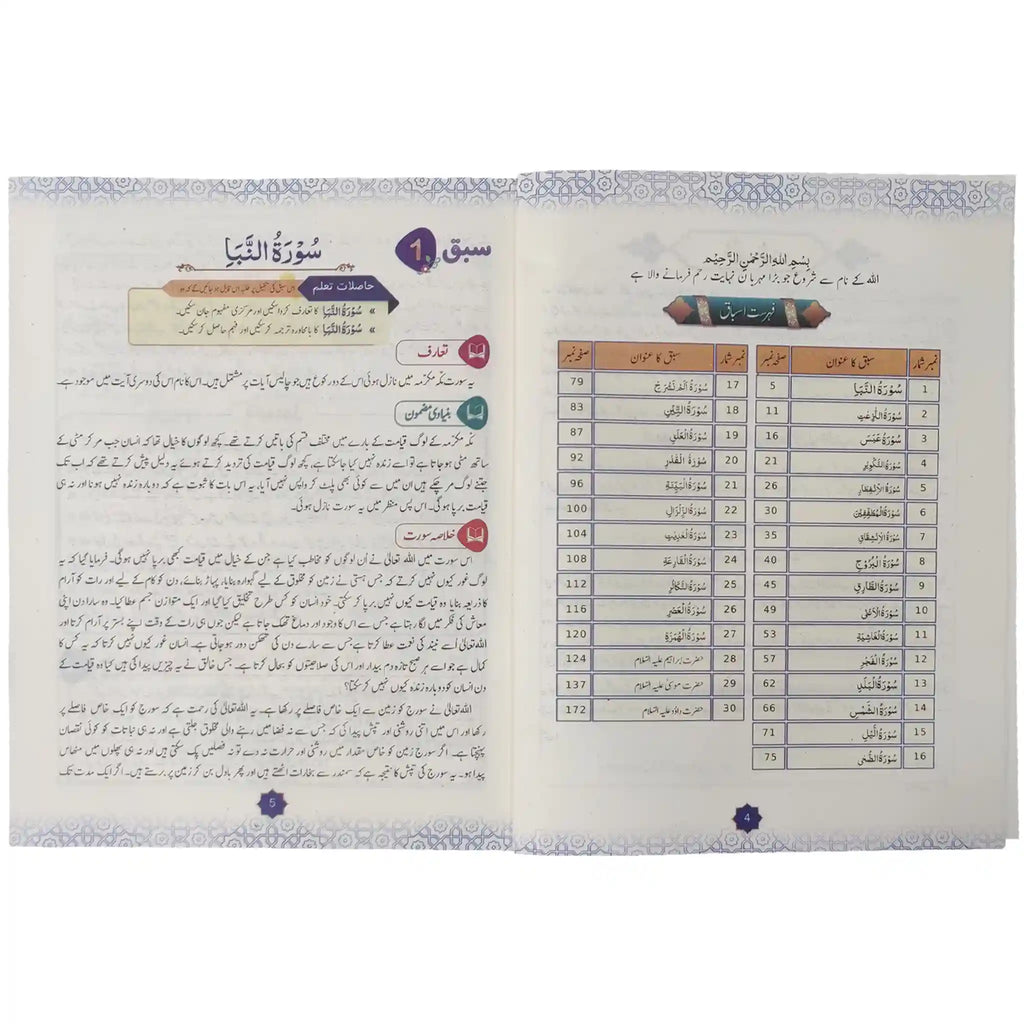 بِسْمِ اللهِ الرَّحْمٰنِ الرَّحِيْمِ
اللہ کے نام سے شروع جو بڑا مہربان نہایت رحم فرمانے والا ہے
فہرست اسباق
نمبر شمار سبق کا عنوان صفحہ نمبر
1 سُوْرَةُ النَّبَاِ 5
2 سُوْرَةُ النّٰزِعٰتِ 11
3 سُوْرَةُ عَبَسَ 16
4 سُوْرَةُ التَّكْوِيْرِ 21
5 سُوْرَةُ الْاِنْفِطَارِ 26
6 سُوْرَةُ الْمُطَفِّفِيْنَ 30
7 سُوْرَةُ الْاِنْشِقَاقِ 35
8 سُوْرَةُ الْبُرُوْجِ 40
9 سُوْرَةُ الطَّارِقِ 45
10 سُوْرَةُ الْاَعْلٰى 49
11 سُوْرَةُ الْغَاشِيَةِ 53
12 سُوْرَةُ الْفَجْرِ 57
13 سُوْرَةُ الْبَلَدِ 62
14 سُوْرَةُ الشَّمْسِ 66
15 سُوْرَةُ الَّيْلِ 71
16 سُوْرَةُ الضُّحٰى 75
نمبر شمار سبق کا عنوان صفحہ نمبر
17 سُوْرَةُ اَلَمْ نَشْرَحْ 79
18 سُوْرَةُ التِّيْنِ 83
19 سُوْرَةُ الْعَلَقِ 87
20 سُوْرَةُ الْقَدْرِ 92
21 سُوْرَةُ الْبَيِّنَةِ 96
22 سُوْرَةُ الزِّلْزَالِ 100
23 سُوْرَةُ الْعٰدِيٰتِ 104
24 سُوْرَةُ الْقَارِعَةِ 108
25 سُوْرَةُ التَّكَاثُرِ 112
26 سُوْرَةُ الْعَصْرِ 116
27 سُوْرَةُ الْهُمَزَةِ 120
28 حضرت ابراہیم علیہ السّلام 124
29 حضرت موسیٰ علیہ السّلام 137
30 حضرت داؤد علیہ السّلام 172
4
سبق 1
سُوْرَةُ النَّبَاِ
حاصلات تعلم اس سبق کی تکمیل پر طلبہ اس قابل ہو جائیں گے کہ وہ
» سُوْرَةُ النَّبَاِ کا تعارف کروا سکیں اور مرکزی مفہوم جان سکیں۔
» سُوْرَةُ النَّبَاِ کا بامحاورہ ترجمہ کر سکیں اور فہم حاصل کر سکیں۔
تعارف
یہ سورت مکّہ مکرّمہ میں نازل ہوئی اس کے دو رکوع ہیں جو چالیس آیات پر مشتمل ہیں۔ اس کا نام اس کی دوسری آیت میں موجود ہے۔
بنیادی مضمون
مکّہ مکرّمہ کے لوگ قیامت کے بارے میں مختلف قسم کی باتیں کرتے تھے۔ کچھ لوگوں کا خیال تھا کہ انسان جب مر کر مٹی کے
ساتھ مٹی ہو جاتا ہے تو اُسے زندہ نہیں کیا جا سکتا ہے، کچھ لوگ قیامت کی تردید کرتے ہوئے یہ دلیل پیش کرتے تھے کہ اب تک
جتنے لوگ مر چکے ہیں ان میں سے کوئی بھی پلٹ کر واپس نہیں آیا، یہ اس بات کا ثبوت ہے کہ دوبارہ زندہ نہیں ہونا اور نہ ہی
قیامت برپا ہوگی۔ اس پس منظر میں یہ سورت نازل ہوئی۔
خلاصہ سورت
اس سورت میں اللہ تعالیٰ نے اُن لوگوں کو مخاطب کیا ہے جن کے خیال میں قیامت کبھی برپا نہیں ہوگی۔ فرمایا گیا کہ یہ
لوگ غور کیوں نہیں کرتے کہ جس ہستی نے زمین کو مخلوق کے لیے گہوارہ بنایا، پہاڑ بنائے، دن کو کام کے لیے اور رات کو آرام
کا ذریعہ بنایا وہ قیامت کیوں نہیں برپا کر سکتی۔ خود انسان کو کس طرح تخلیق کیا گیا اور ایک متوازن جسم عطا کیا۔ وہ سارا دن اپنی
معاش کی فکر میں لگا رہتا ہے جس سے اس کا وجود اور دماغ تھک جاتا ہے لیکن جوں ہی رات کے وقت اپنے بستر پر آرام کرتا اور
اللہ تعالیٰ اُسے نیند کی نعمت عطا کرتا ہے جس سے سارے دن کی تھکن دور ہو جاتی ہے۔ انسان غور کیوں نہیں کرتا کہ یہ کس کا
کمال ہے جو اسے ہر صبح تازہ دم بیدار اور اس کی صلاحیتوں کو بحال کرتا ہے۔ جس خالق نے یہ چیزیں پیدا کی ہیں کیا وہ قیامت کے
دن انسان کو دوبارہ زندہ کیوں نہیں کر سکتا؟
اللہ تعالیٰ نے سورج کو زمین سے ایک خاص فاصلے پر رکھا ہے۔ یہ اللہ تعالیٰ کی رحمت ہے کہ سورج کو ایک خاص فاصلے پر
رکھا اور اس میں اتنی روشنی اور تپش پیدا کی کہ جس سے نہ فضا میں رہنے والی مخلوق جلتی ہے اور نہ ہی نباتات کو کوئی نقصان
پہنچتا ہے۔ اگر سورج زمین کو خاص مقدار میں روشنی اور حرارت نہ دے تو نہ فصلیں پک سکتی ہیں اور نہ ہی پھلوں میں مٹھاس
پیدا ہو۔ یہ سورج کی تپش کا نتیجہ ہے کہ سمندر سے بخارات اٹھتے ہیں اور پھر بادل بن کر زمین پر برستے ہیں۔ اگر ایک مدت تک
5